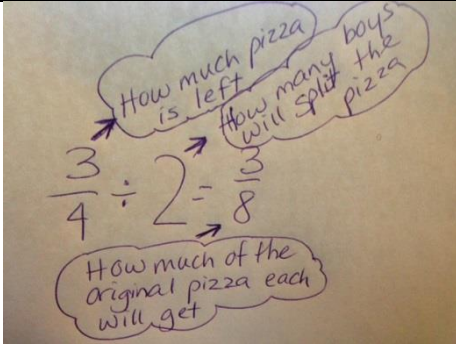 How much pizza
is left
How many boys
will split the
pizza
3/4 ÷ 2 = 3/8
How much of the
original pizza each
will get